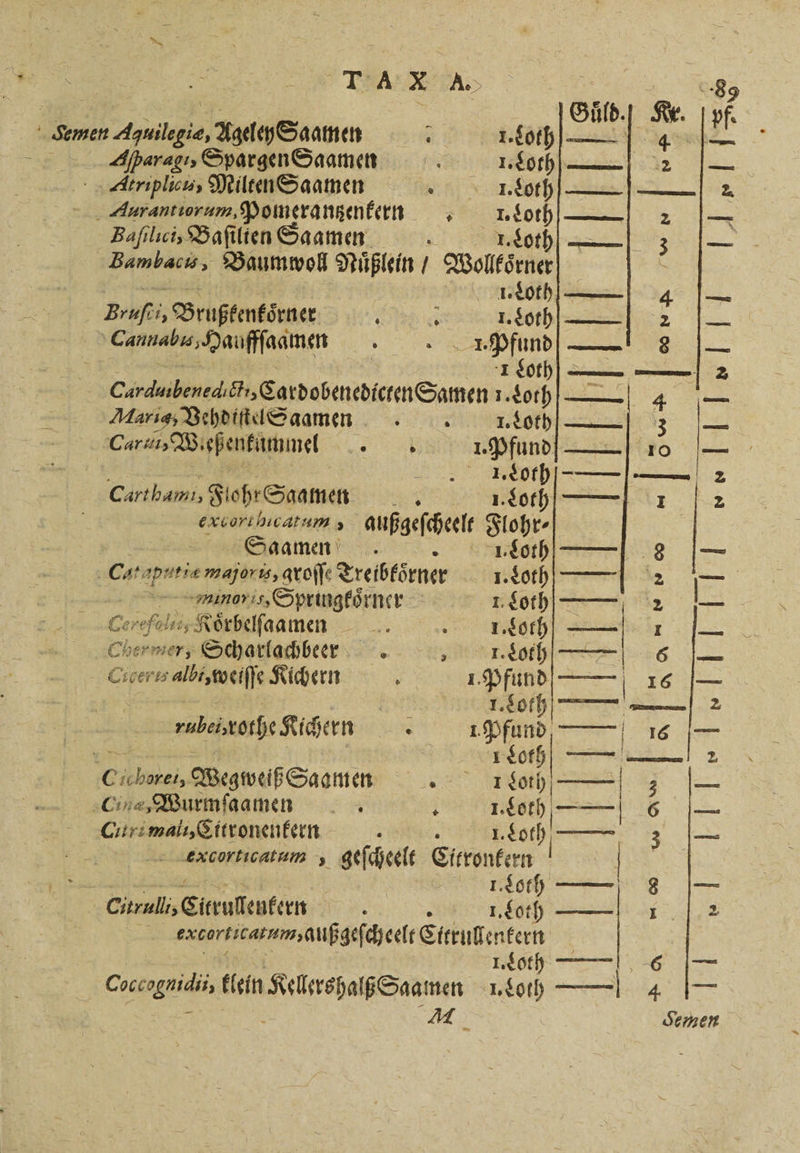 TAXA. 89
Gůld. Kr. pf.
Semen Aquilegiæ, AgeleySaamen . 1.Loth —— 4 —
Asparagi, SpargenSaamen . 1.Loth —— 2 —
Atriplicis, MiltenSaamen . 1.Loth —— —— 2
Aurantiorum, Pomerantzenkern . 1.Loth —— 2 —
Basilici, Basilien Saamen . 1.Loth —— 3 —
Bambacis, Baumwoll Nüßlein / Wollkörner
1.Loth —— 4 —
Brusci, Brußkenkörner . . 1.Loth —— 2 —
Cannabis, Haufffaamen . . 1.Pfund —— 8 —
1 Loth —— —— 2
CarduibenediCti, CardobenedictenSamen 1.Loth —— 4 —
Mariæ, BehdistelSaamen . . 1.Loth —— 3 —
Carui, Wiesenkümmel . . 1.Pfund —— 10 —
1.Loth —— —— 2
Carthami, FlohrSaamen . 1.Loth —— 1 2
excorthicatum, außgescheelt Flohr-
Saamen . . 1.Loth —— 8 —
Cataputiæ majoris, grosse Treibkörner 1.Loth —— 2 —
minoris, Springkörner 1.Loth —— 2 —
Cerefolii, Körbelsaamen . . 1.Loth —— 1 —
Chermer, Scharlachbeer . , 1.Loth —— 6 —
Ciceris albi, weisse Kichern . 1.Pfund —— 16 —
1.Loth —— —— 2
rubei, rothe Kichern . 1.Pfund —— 16 —
1 Loth —— —— 2
Cichorei, WegweißSaamen . 1 Loth —— 3 —
Cinæ, Wurmsaamen . . 1.Loth —— 6 —
Citri mali, Citronenkern . . 1.Loth —— 3 —
excorticatum, gescheelt Citronkern
1.Loth —— 8 —
Citrulli, Citrullenkern . . 1.Loth —— 1 2
excorticatum, außgescheelt Citrullenkern
1.Loth —— 6 —
Coccognidii, klein KellerßhalßSaamen 1.Loth —— 4 —
M Semen